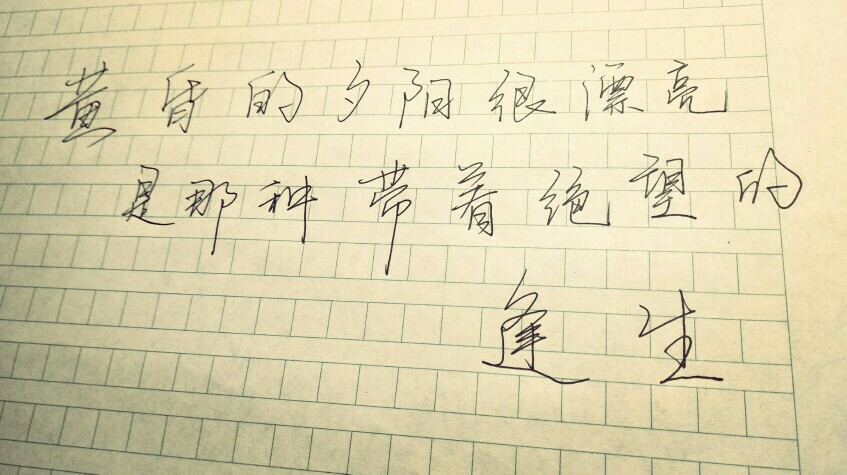 黄昏的夕阳很漂亮
是那种带着绝望的
逢生